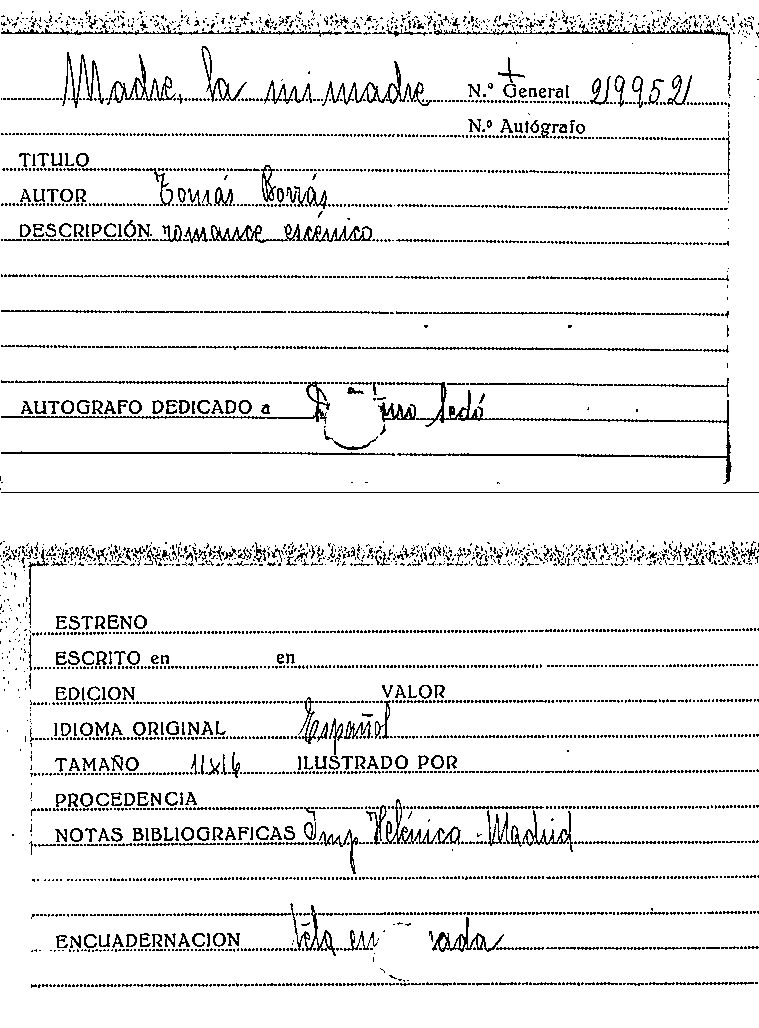 Madre, la mi madre N.º General 219952
N.º Autógrafo
TITULO
AUTOR Tomás Borrás
DESCRIPCIÓN romance escénico
AUTOGRAFO DEDICADO a Sedó
ESTRENO
ESCRITO en en
EDICION VALOR
IDIOMA ORIGINAL Español
TAMAÑO 11x16 ILUSTRADO POR
PROCEDENCIA
NOTAS BIBLIOGRAFICAS Imp Helénica - Madrid
ENCUADERNACION tela